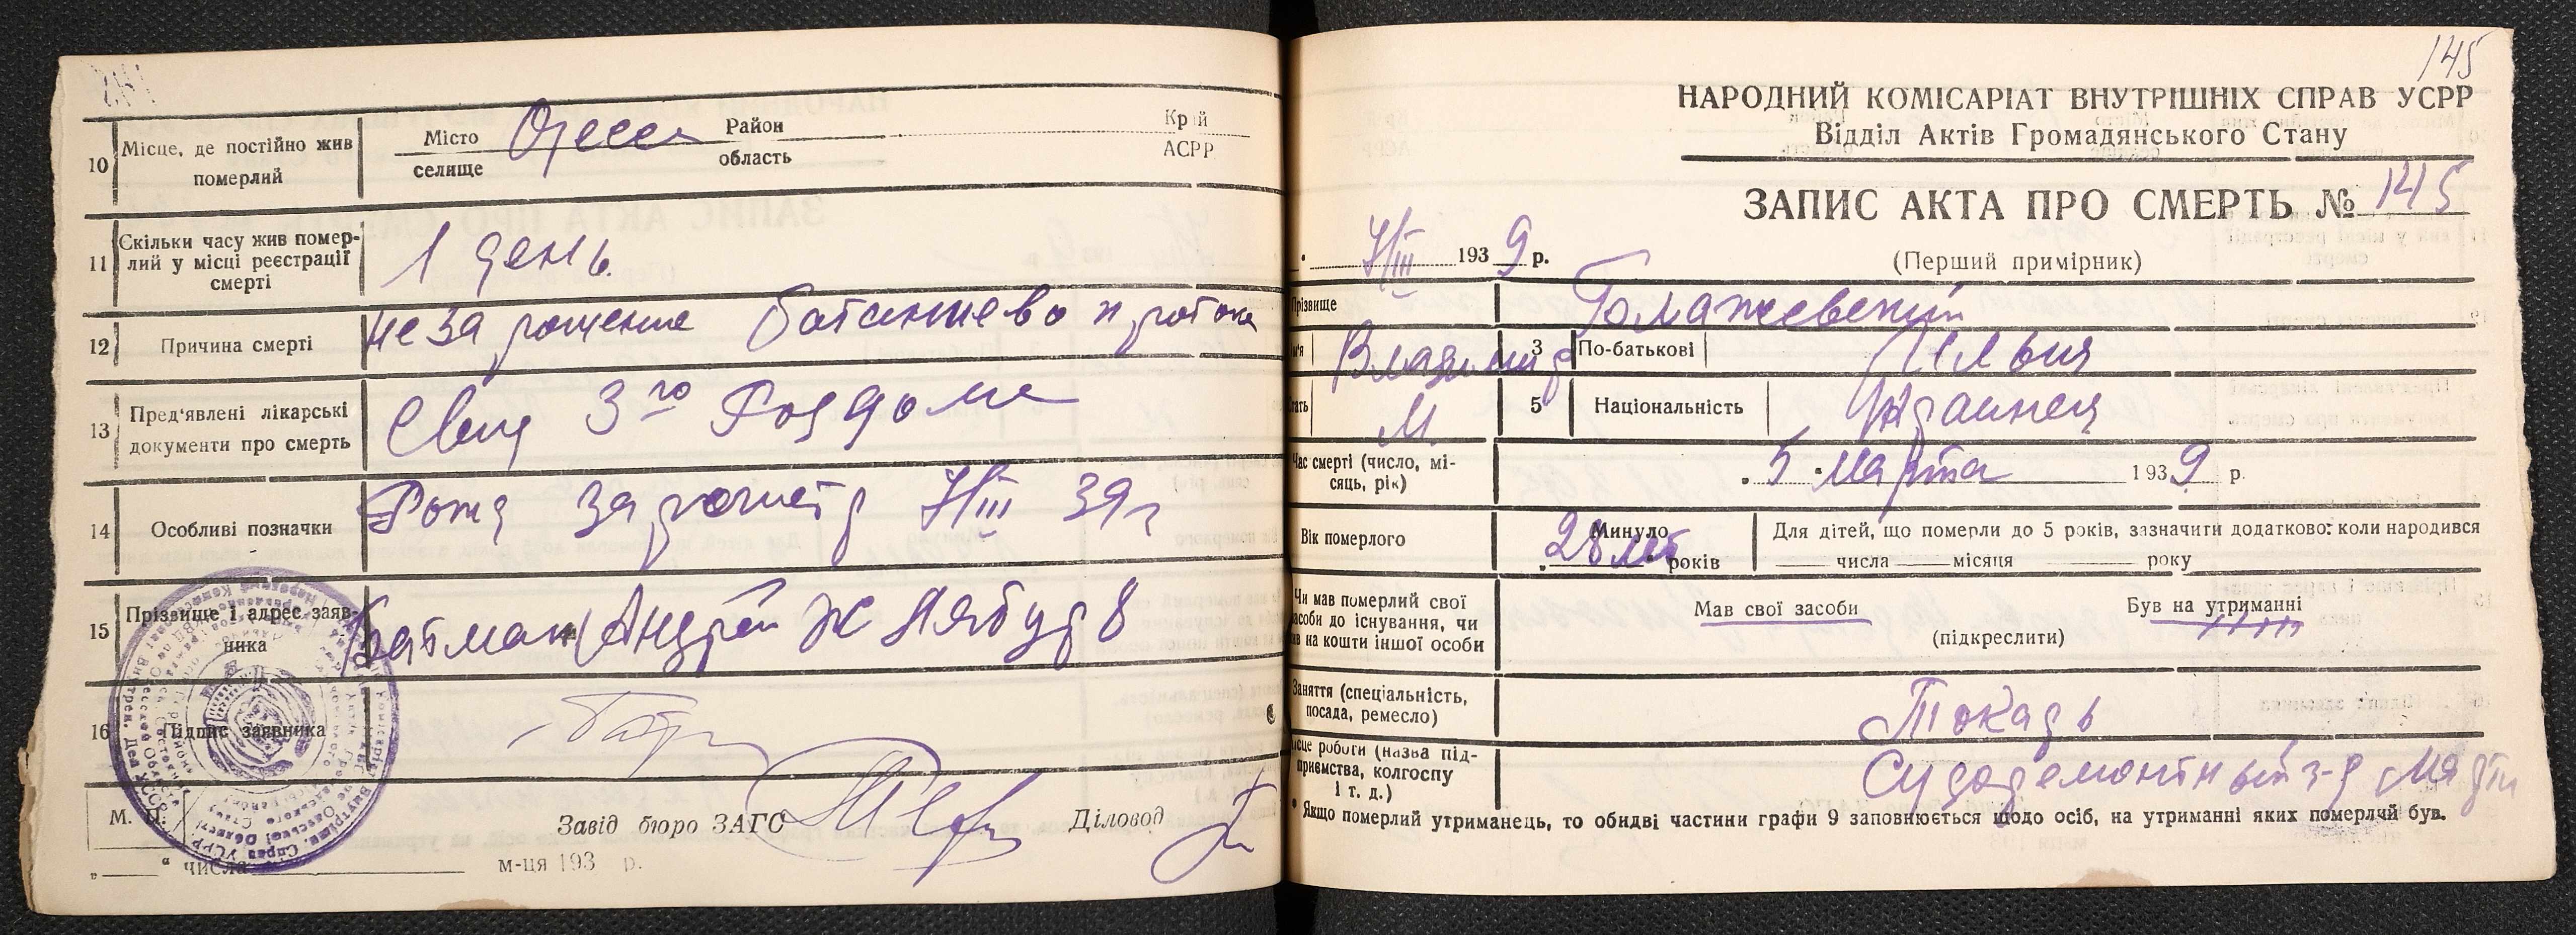 10 Місце, де постійно жив померлий
Місто селище Одесса Район область Край АСРР
11 Скільки часу жив помер-
лий у місці реєстрації
смерті
1 день
12 Причина смерті
незарощение баталиева протока
13 Пред'явлені лікарські
документи про смерть
Свид 3го Роддома
14 Особливі позначки
Рожд зарегистр 7/III 39 г
15 Прізвище і адрес заяв-
ника
Андрей
8
16 Підпис заявника
М. П.
Завід бюро ЗАГС
Діловод
„ “ числа м-ця 193 р.
145
НАРОДНИЙ КОМІСАРІАТ ВНУТРІШНІХ СПРАВ УСРР
Відділ Актів Громадянського Стану
ЗАПИС АКТА ПРО СМЕРТЬ № 145
7/III 1939 р.
(Перший примірник)
Прізвище
Владимир 3 По-батькові Илья
М 5 Національність Украинец
Час смерті (число, мі-
сяць, рік)
5 марта 1939 р.
Вік померлого
Минуло
28 лет років
Для дітей, що померли до 5 років, зазначити додатково: коли народився
числа місяця року
Чи мав померлий свої
засоби до існування, чи
на кошти іншої особи
Мав свої засоби Був на утриманні
(підкреслити)
Заняття (спеціальність,
посада, ремесло)
Токарь
місце роботи (назва під-
приємства, колгоспу
і т. д.)
Судоремонтный з-д Марти
* Якщо померлий утриманець, то обидві частини графи 9 заповнюється щодо осіб, на утриманні яких померлий був.